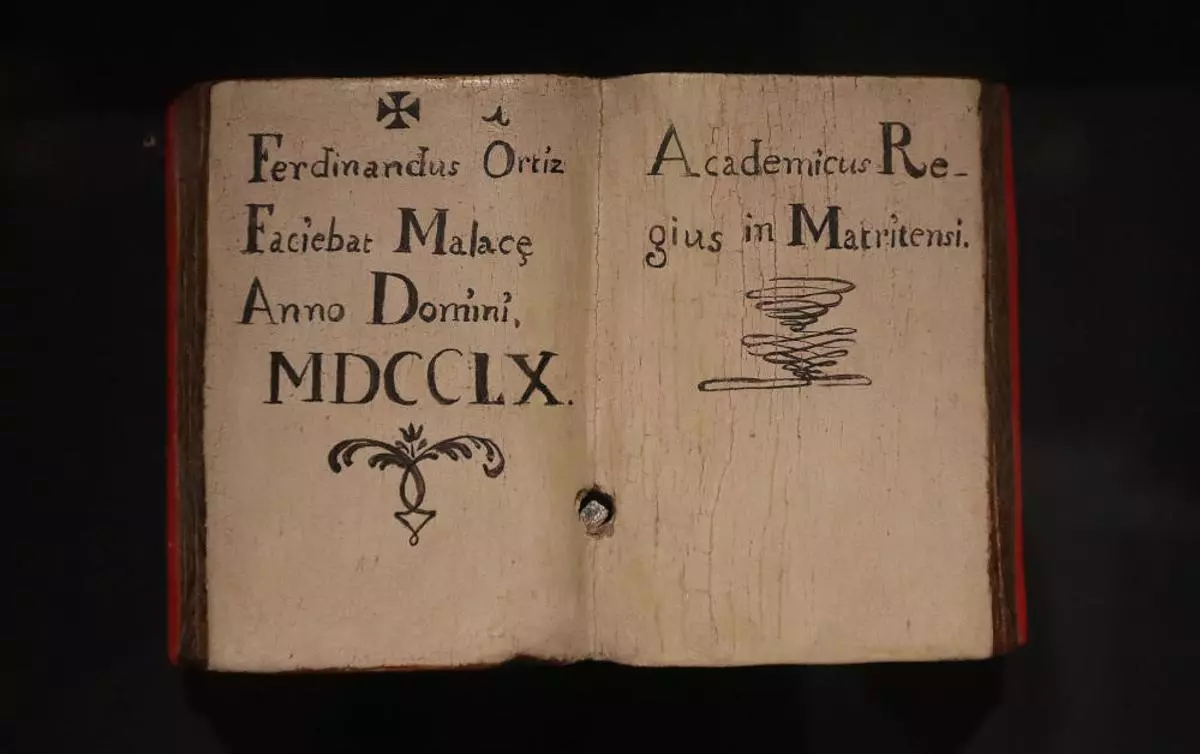 Ferdinandus Ortiz
Faciebat Malacę
Anno Domini,
MDCCLX.
Academicus Re-
gius in Matritensi.